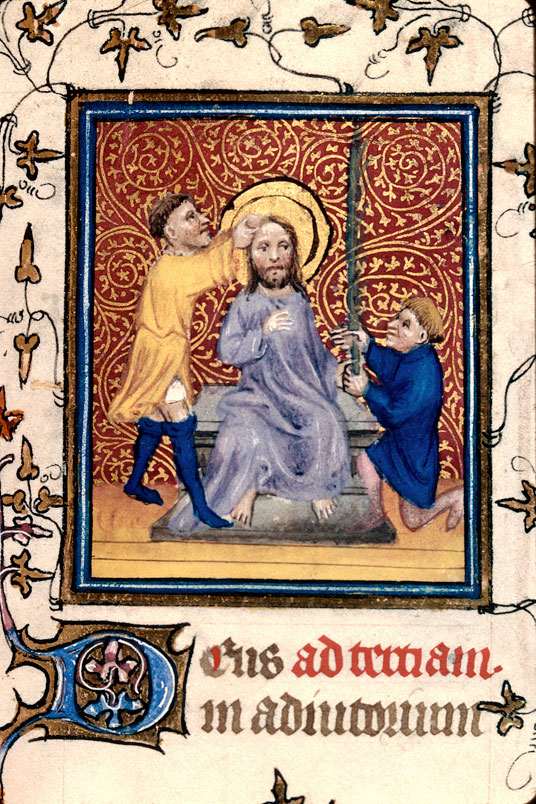 Deus ad tertiam.
in adiutorium